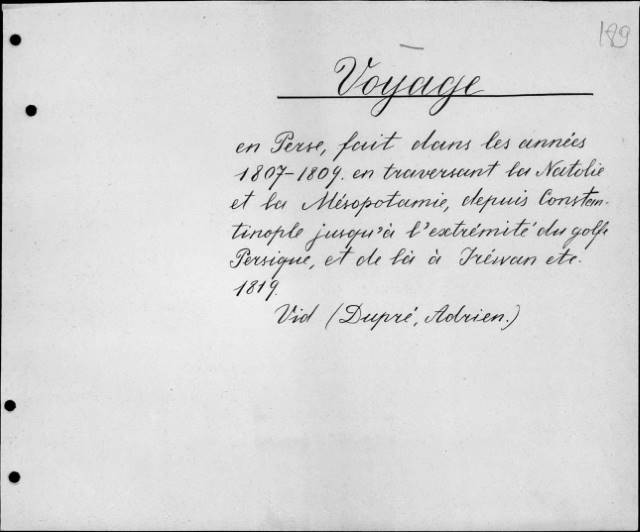 189
Voyage
en Perse, fait dans les années
1807-1809. en traversant la Natolie
et la Mésopotamie, depuis Constan-
tinople jusqu'à l'extrémité du golfe
Persique, et de là à Iréwan etc.
1819.
Vid (Dupré, Adrien.)